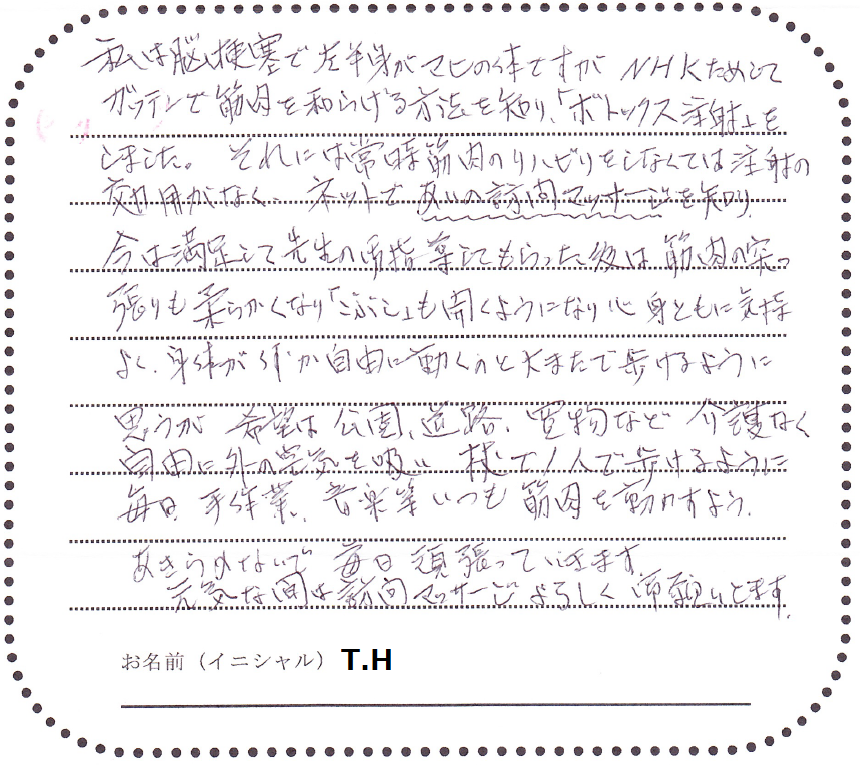 私は脳梗塞で左半身がマヒの体ですが NHKためして
ガッテンで筋肉を和らげる方法を知り、「ボトックス注射」を
しました。それには常時筋肉のリハビリをしなくては注射の
効用がなく、ネットで あいの訪問マッサージを知り、
今は満足して先生の御指導してもらった後は筋肉の突っ
張りも柔らかくなり「こぶし」も開くようになり心身ともに気持
よく、身体が 自由に動くのと大またで歩けるように
思うが 希望は公園、道路、買物など 介護なく
自由に外の空気を吸い 杖で1人で歩けるように
毎日 手作業、音楽等 いつも 筋肉を動かすよう、
あきらめないで 毎日頑張っていきます。
元気な間は訪問マッサージよろしく御願いします。
お名前（イニシャル） T.H